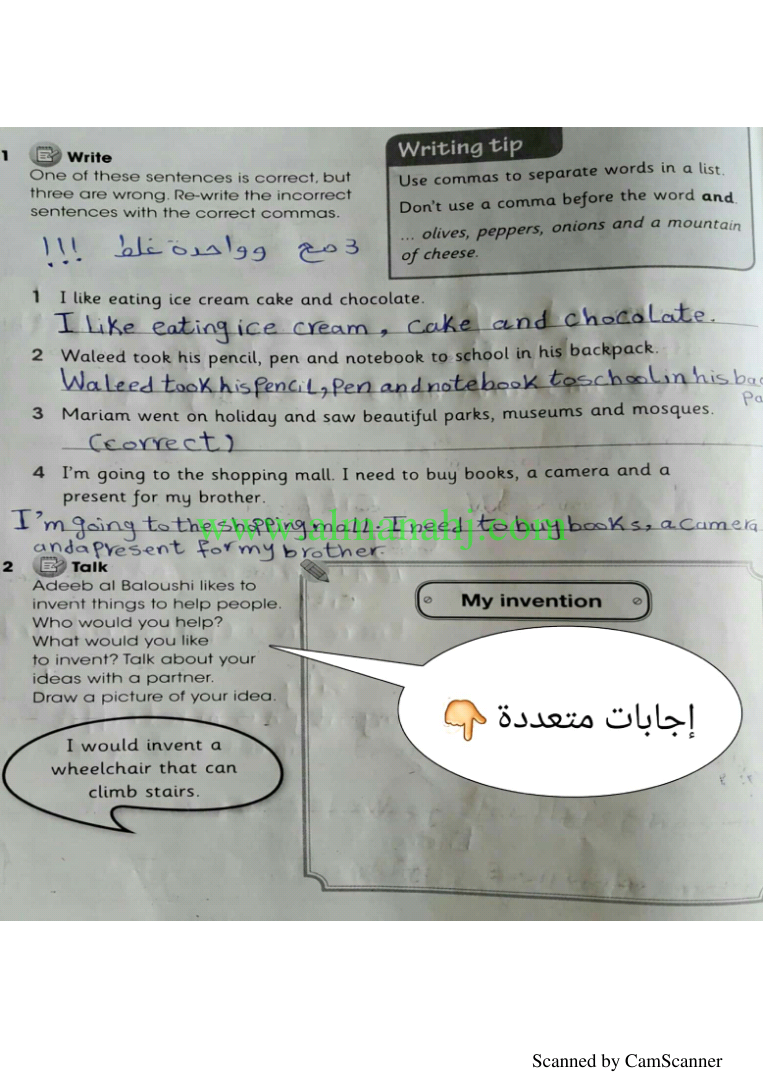 1 Write
One of these sentences is correct, but
three are wrong. Re-write the incorrect
sentences with the correct commas.
3 صح وواحدة غلط !!!
Writing tip
Use commas to separate words in a list.
Don't use a comma before the word and.
... olives, peppers, onions and a mountain
of cheese.
1 I like eating ice cream cake and chocolate.
I like eating ice cream, cake and chocolate.
2 Waleed took his pencil, pen and notebook to school in his backpack.
Waleed took his pencil, pen and notebook to school in his bac
Pa
3 Mariam went on holiday and saw beautiful parks, museums and mosques.
(correct)
4 I'm going to the shopping mall. I need to buy books, a camera and a
present for my brother.
I'm going to the shopping mall. I need to buy books, a camera
and a present for my brother.
www.almanahj.com
2 Talk
Adeeb al Baloushi likes to
invent things to help people.
Who would you help?
What would you like
to invent? Talk about your
ideas with a partner.
Draw a picture of your idea.
I would invent a
wheelchair that can
climb stairs.
My invention
إجابات متعددة 👇
Scanned by CamScanner